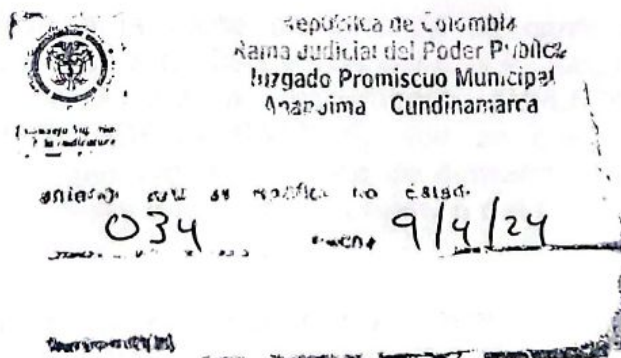 República de Colombia
Rama Judicial del Poder Público
Juzgado Promiscuo Municipal
Anapoima Cundinamarca
Consejo Superior
de la Judicatura
anterior auto se notifica Estado
034 9/4/24